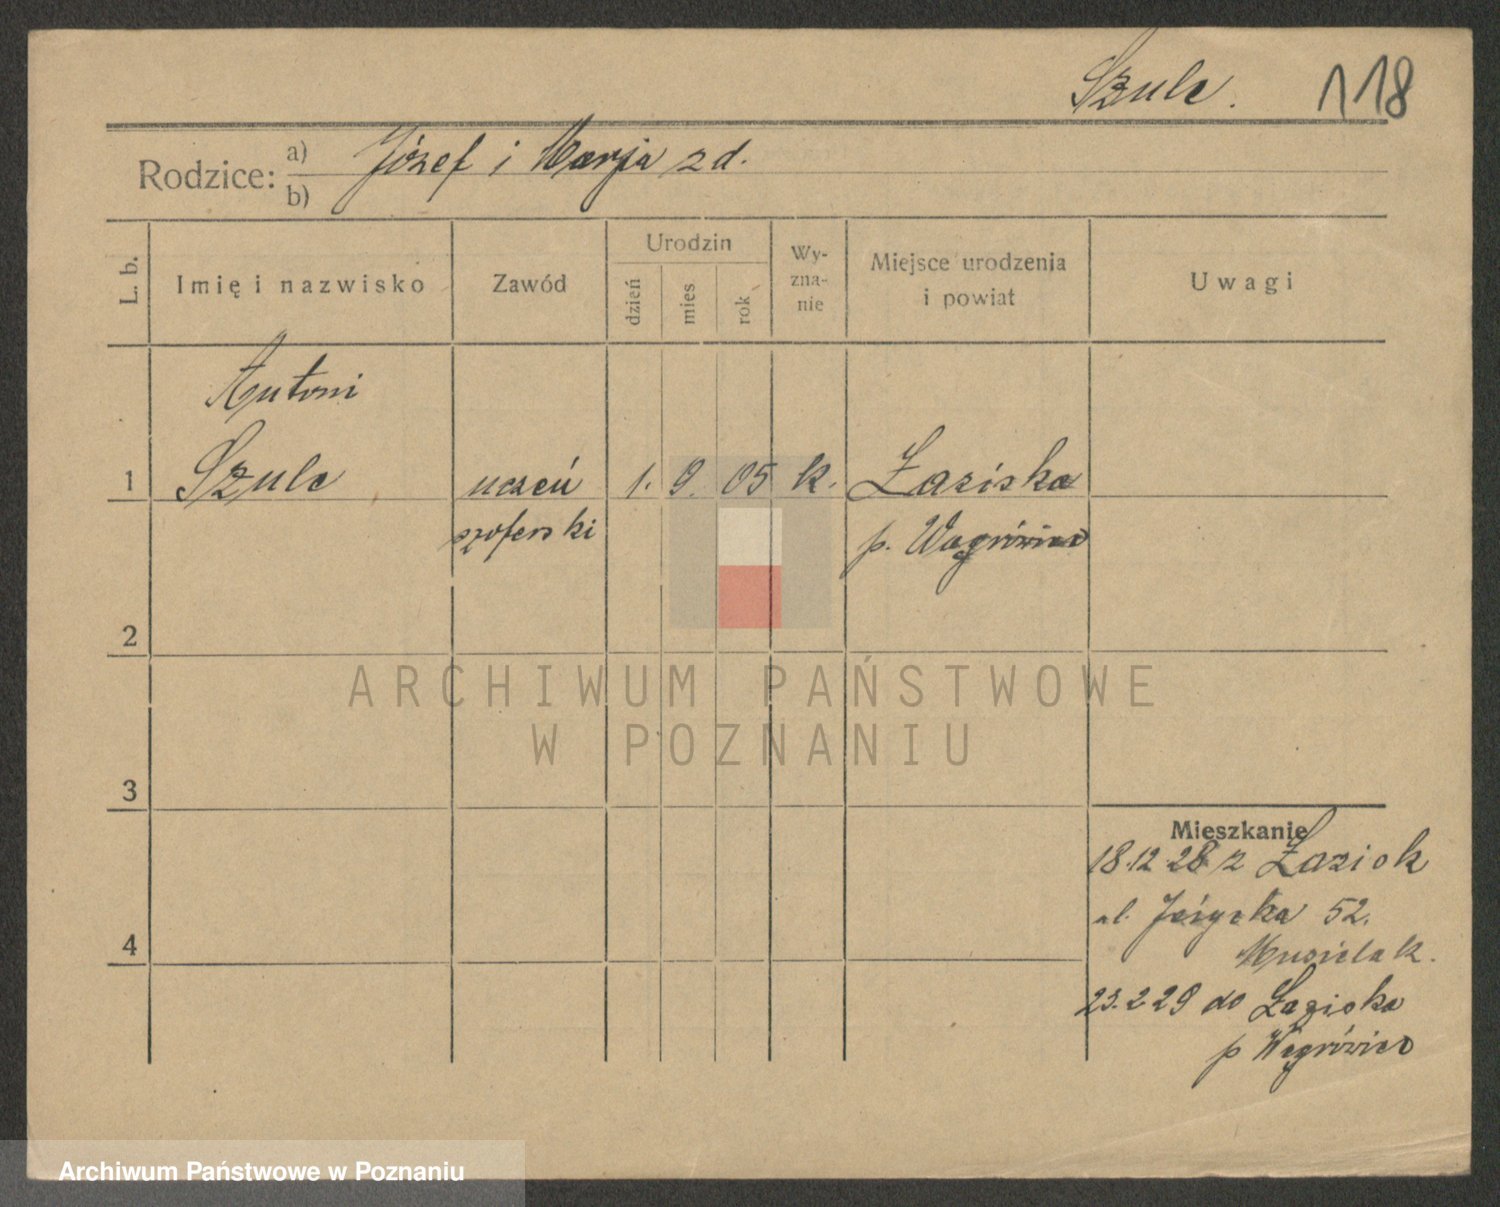 Szulc. 118
Rodzice: a) Józef i Marja zd.
b)
L. b.
Imię i nazwisko
Zawód
Urodzin
dzień
mies
rok
Wy-
zna-
nie
Miejsce urodzenia
i powiat
Uwagi
Antoni
1 Szulc uczeń 1. 9. 05 k. Łaziska
szoferski p. Wągrówiec
2
ARCHIWUM PAŃSTWOWE
W POZNANIU
3
Mieszkanie
18.12.28 z Łazisk
ul. 52.
4
Musielak.
23.2.29 do Łaziska
p Wągrówiec
Archiwum Państwowe w Poznaniu